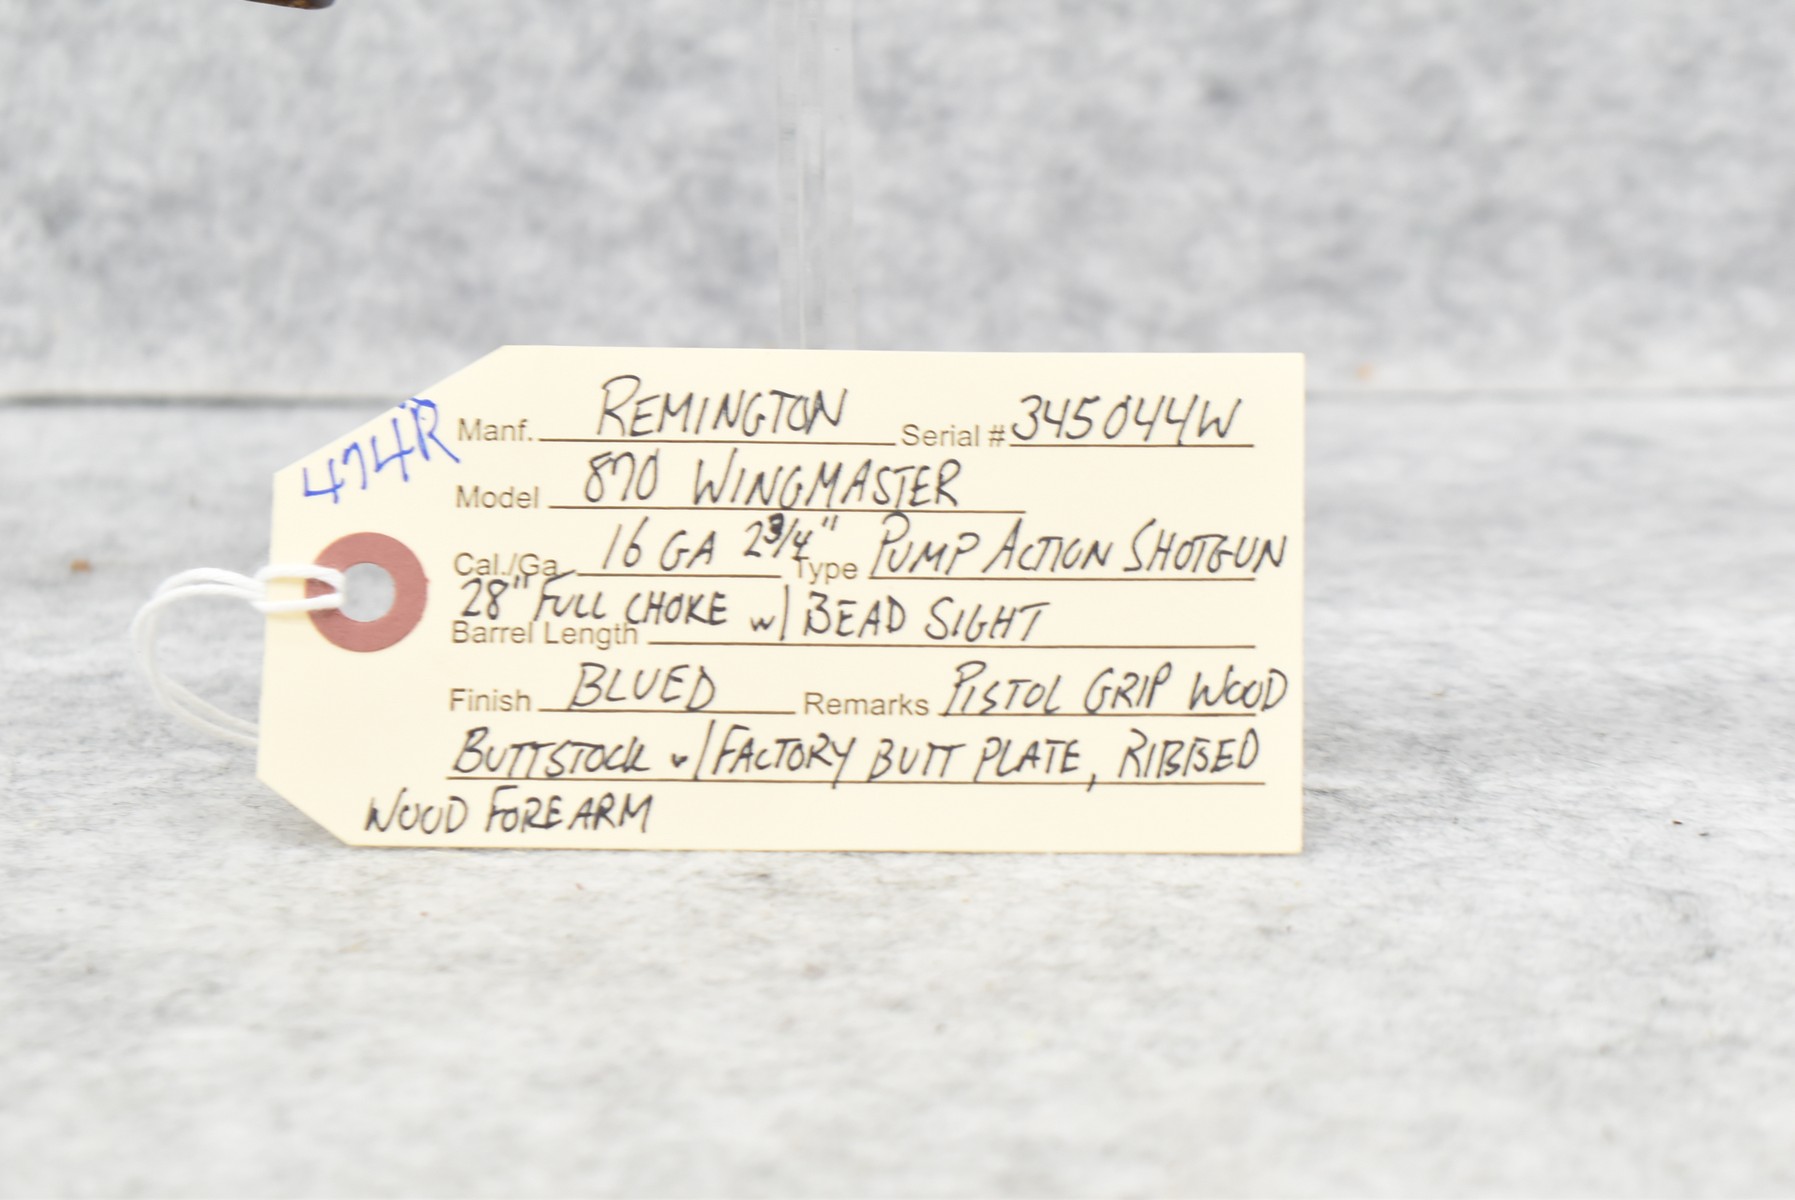 474R
Manf. REMINGTON Serial # 345044W
Model 870 WINGMASTER
Cal./Ga. 16 GA 2 3/4" Type PUMP ACTION SHOTGUN
28" FULL CHOKE w/ BEAD SIGHT
Barrel Length
Finish BLUED Remarks PISTOL GRIP WOOD
BUTTSTOCK w/ FACTORY BUTT PLATE, RIBBED
WOOD FOREARM